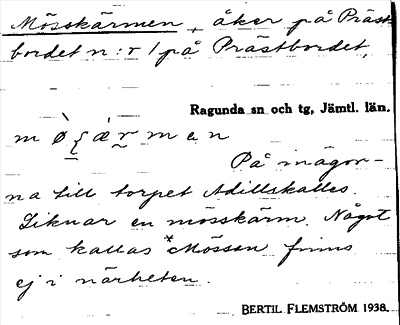 Mösskärmen, åker på Präst
bordet n:r 1 på Prästbordet,
Ragunda sn och tg, Jämtl. län.
På inägor-
na till torpet Adillskalles.
Liknar en mösskärm. Något
som kallas *Mössan finns
ej i närheten.
BERTIL FLEMSTRÖM 1938.